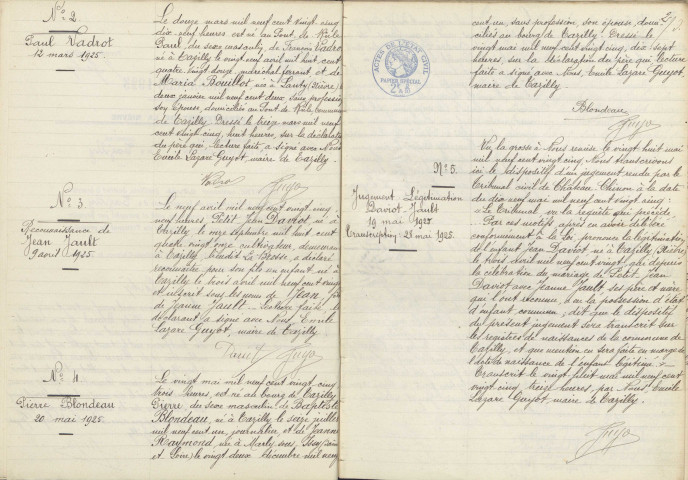 N° 2
Paul Vadrot
12 mars 1925.
Le douze mars mil neuf cent vingt cinq,
dix neuf heures, est né au Pont,
Paul, du sexe masculin, de François Vadrot
né à Cazilly, le vingt neuf avril mil huit cent
quatre vingt douze, maréchal ferrant, et de
Maria Bouillot née à Lanty (Nièvre) le
deux janvier mil neuf cent deux, sans profession
son épouse, domiciliés au Pont, commune
de Cazilly. Dressé le treize mars mil neuf
cent vingt cinq, huit heures, sur la déclaration
du père qui, lecture faite, a signé avec Nous
Emile Lazare Guyot, maire de Cazilly.
Vadrot Guyot
N° 3
Reconnaissance de
Jean Jault
9 avril 1925.
Le neuf avril mil neuf cent vingt cinq
neuf heures, Petit Jean Daviot, né à
Cazilly, le onze septembre mil huit cent
quatre vingt onze cultivateur demeurant
à Cazilly, lieudit La Brosse, a déclaré
reconnaître pour son fils un enfant né à
Cazilly le trois avril mil neuf cent vingt
et inscrit sous les noms de Jean, fils
de Jeanne Jault. Lecture faite, le
déclarant a signé avec Nous, Emile
Lazare Guyot, maire de Cazilly.
Daviot Guyot
N° 4
Pierre Blondeau
20 mai 1925.
Le vingt mai mil neuf cent vingt cinq
trois heures, est né au bourg de Cazilly
Pierre, du sexe masculin, de Baptiste
Blondeau, né à Cazilly le seize juillet
mil neuf cent un, journalier, et de Jeanne
Raymond, née à Marly sous Issy (Saône
et Loire) le vingt deux décembre mil neuf
cent un, sans profession, son épouse, domi-
ciliés au bourg de Cazilly. Dressé le
vingt mai mil neuf cent vingt cinq, dix sept
heures, sur la déclaration du père qui, lecture
faite a signé avec Nous, Emile Lazare Guyot,
maire de Cazilly.
Blondeau
Guyot
ACTES DE L'ETAT CIVIL
N° 5.
Jugement Légitimation
Daviot-Jault
19 mai 1925
Transcription: 28 mai 1925.
Vu la grosse à Nous remise le vingt huit mai
mil neuf cent vingt cinq, Nous transcrivons
ici le dispositif d'un jugement rendu par le
Tribunal civil de Château-Chinon à la date
du dix neuf mai mil neuf cent vingt cinq:
" Le Tribunal, vu la requête qui précède
Par ces motifs, après en avoir délibéré
conformément à la Loi, prononce la légitimation
de l'enfant Jean Daviot né à Cazilly (Nièvre)
le trois avril mil neuf cent vingt, qui depuis
la célébration du mariage de Petit Jean
Daviot avec Jeanne Jault ses père et mère
qui l'ont reconnu, a eu la possession d'état
d'enfant commun; dit que le dispositif
du présent jugement sera transcrit sur
les registres de naissances de la commune de
Cazilly, et que mention en sera faite en marge de
l'acte de naissance de l'enfant légitimé. "
Transcrit le vingt huit mai mil neuf cent
vingt cinq, treize heures, par Nous, Emile
Lazare Guyot, maire de Cazilly.
Guyot